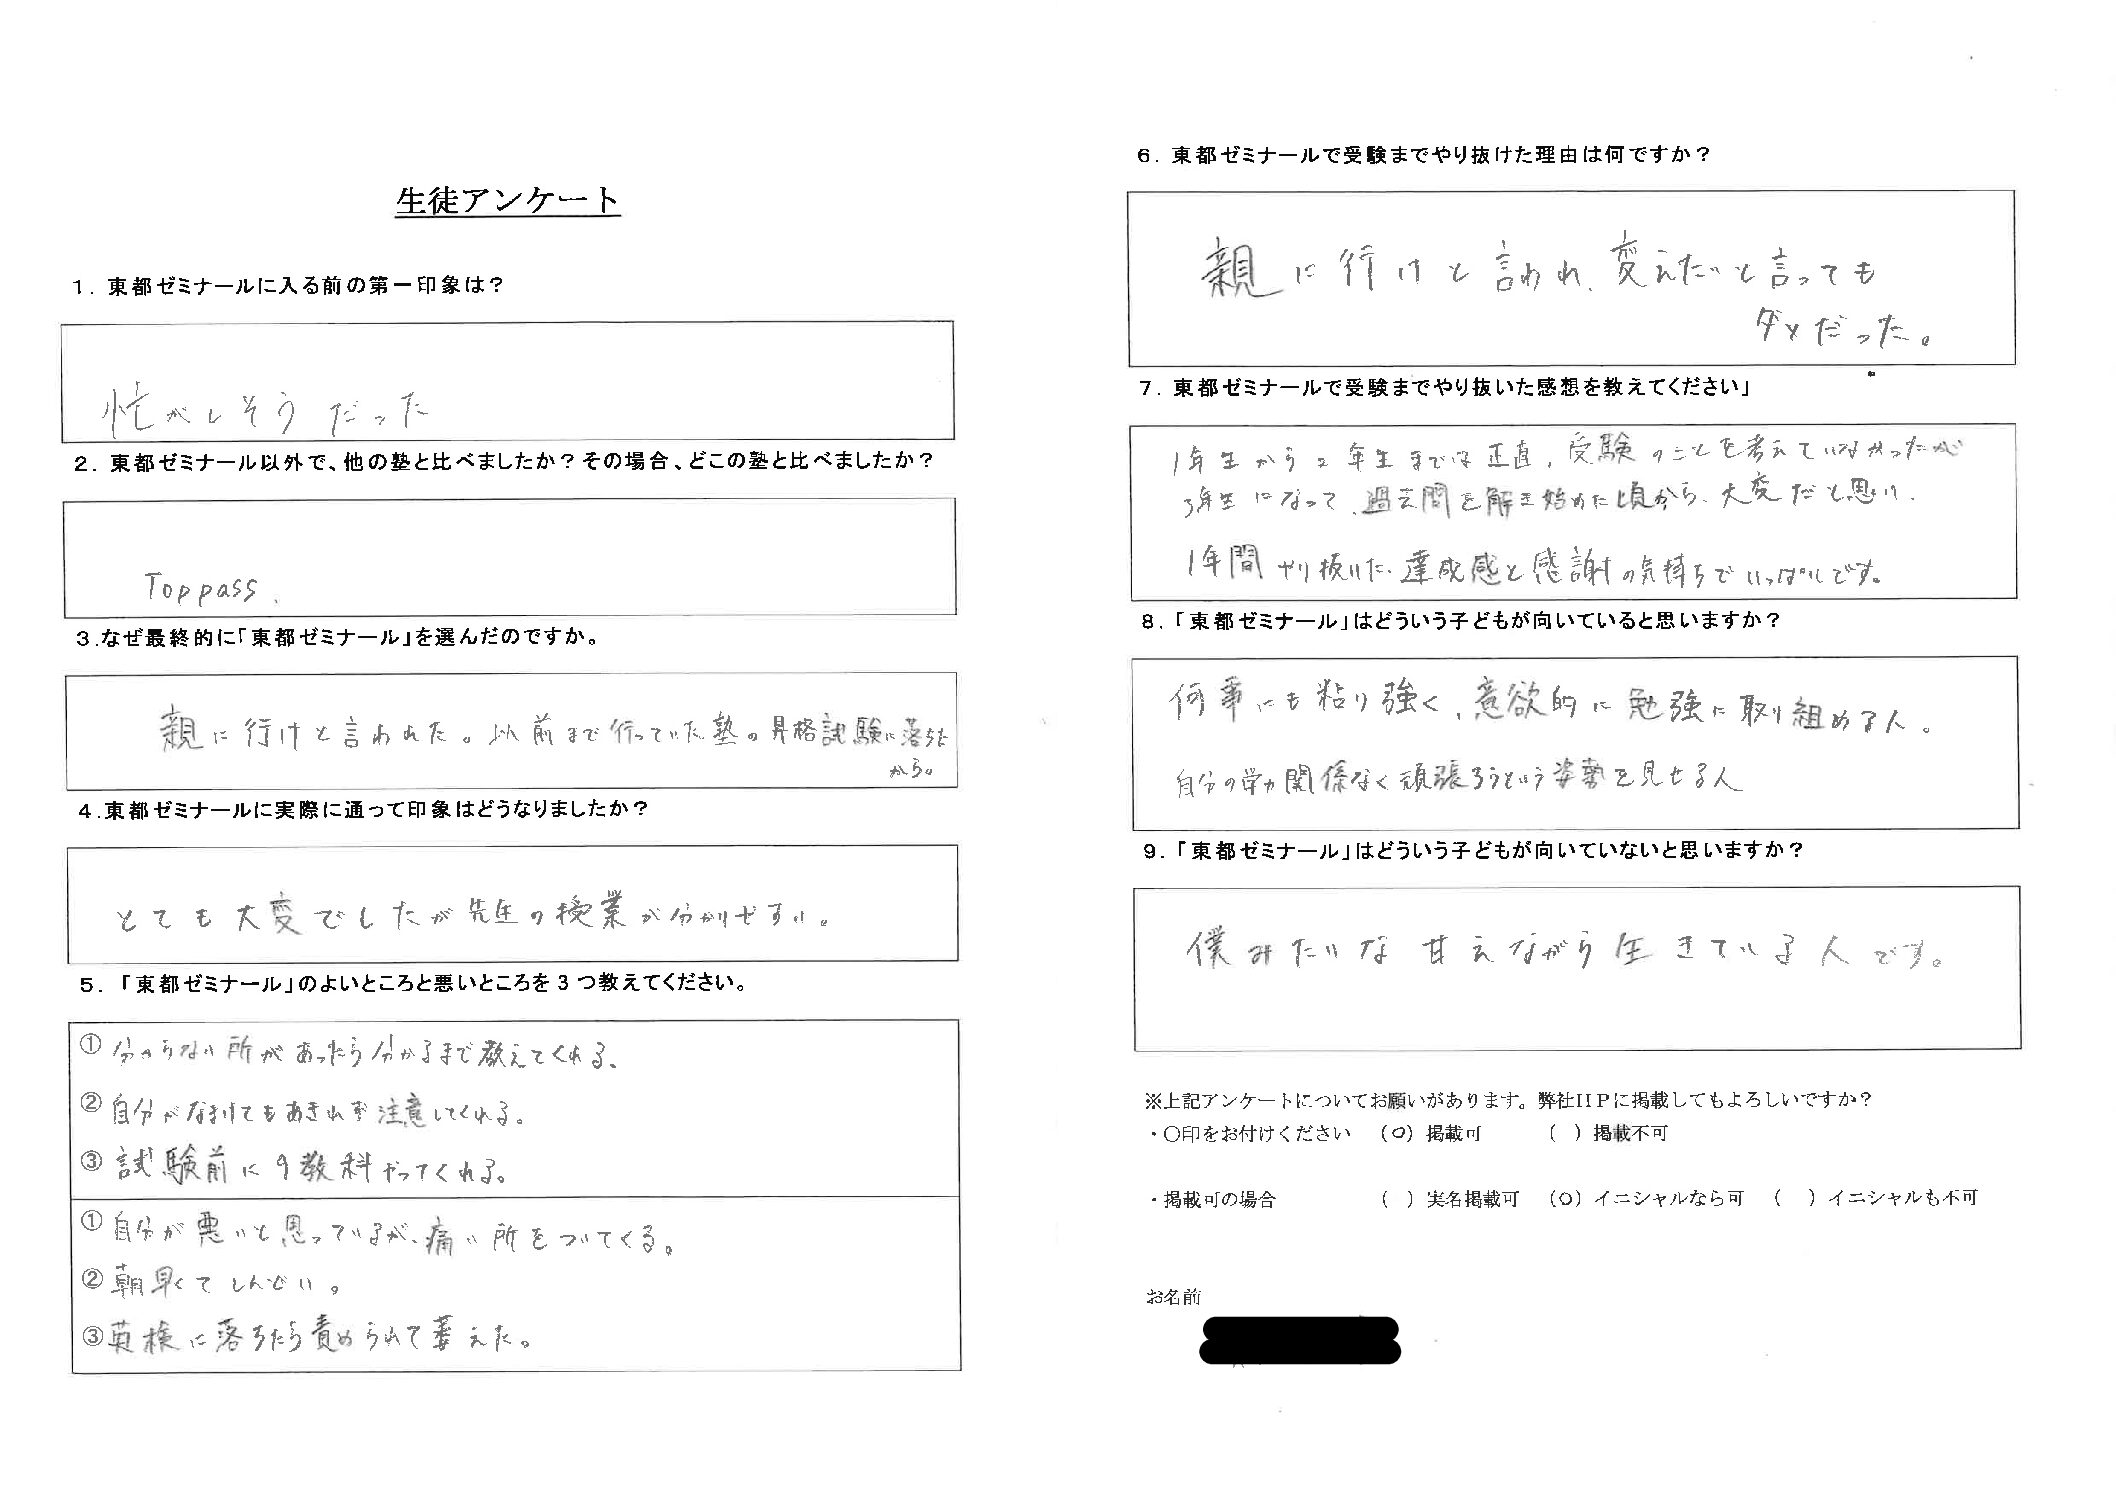 生徒アンケート
1. 東都ゼミナールに入る前の第一印象は？
忙がしそうだった
2. 東都ゼミナール以外で、他の塾と比べましたか？その場合、どこの塾と比べましたか？
Toppass.
3.なぜ最終的に「東都ゼミナール」を選んだのですか。
親に行けと言われた。以前まで行っていた塾の昇格試験に落ちた
から。
4.東都ゼミナールに実際に通って印象はどうなりましたか？
とても大変でしたが先生の授業が分かりやすい。
5. 「東都ゼミナール」のよいところと悪いところを3つ教えてください。
① 分からない所があったら分かるまで教えてくれる、
② 自分がなまけてもあきれず注意してくれる。
③ 試験前に9教科やってくれる。
① 自分が悪いと思っているが、痛い所をついてくる。
② 朝早くてしんどい。
③ 英検に落ちたら責められて萎えた。
6. 東都ゼミナールで受験までやり抜けた理由は何ですか？
親に行けと言われ、変えたいと言っても
ダメだった。
7. 東都ゼミナールで受験までやり抜いた感想を教えてください」
1年生から2年生までは正直、受験のことを考えていなかったが
3年生になって、過去問を解き始めた頃から、大変だと思い、
1年間やり抜いた、達成感と感謝の気持ちでいっぱいです。
8. 「東都ゼミナール」はどういう子どもが向いていると思いますか？
何事にも粘り強く、意欲的に勉強に取り組める人。
自分の学力関係なく頑張ろうという姿勢を見せる人
9. 「東都ゼミナール」はどういう子どもが向いていないと思いますか？
僕みたいな甘えながら生きている人です。
※上記アンケートについてお願いがあります。弊社HPに掲載してもよろしいですか？
・〇印をお付けください （〇）掲載可 （ ）掲載不可
・掲載可の場合 （ ）実名掲載可 （〇）イニシャルなら可 （ ）イニシャルも不可
お名前